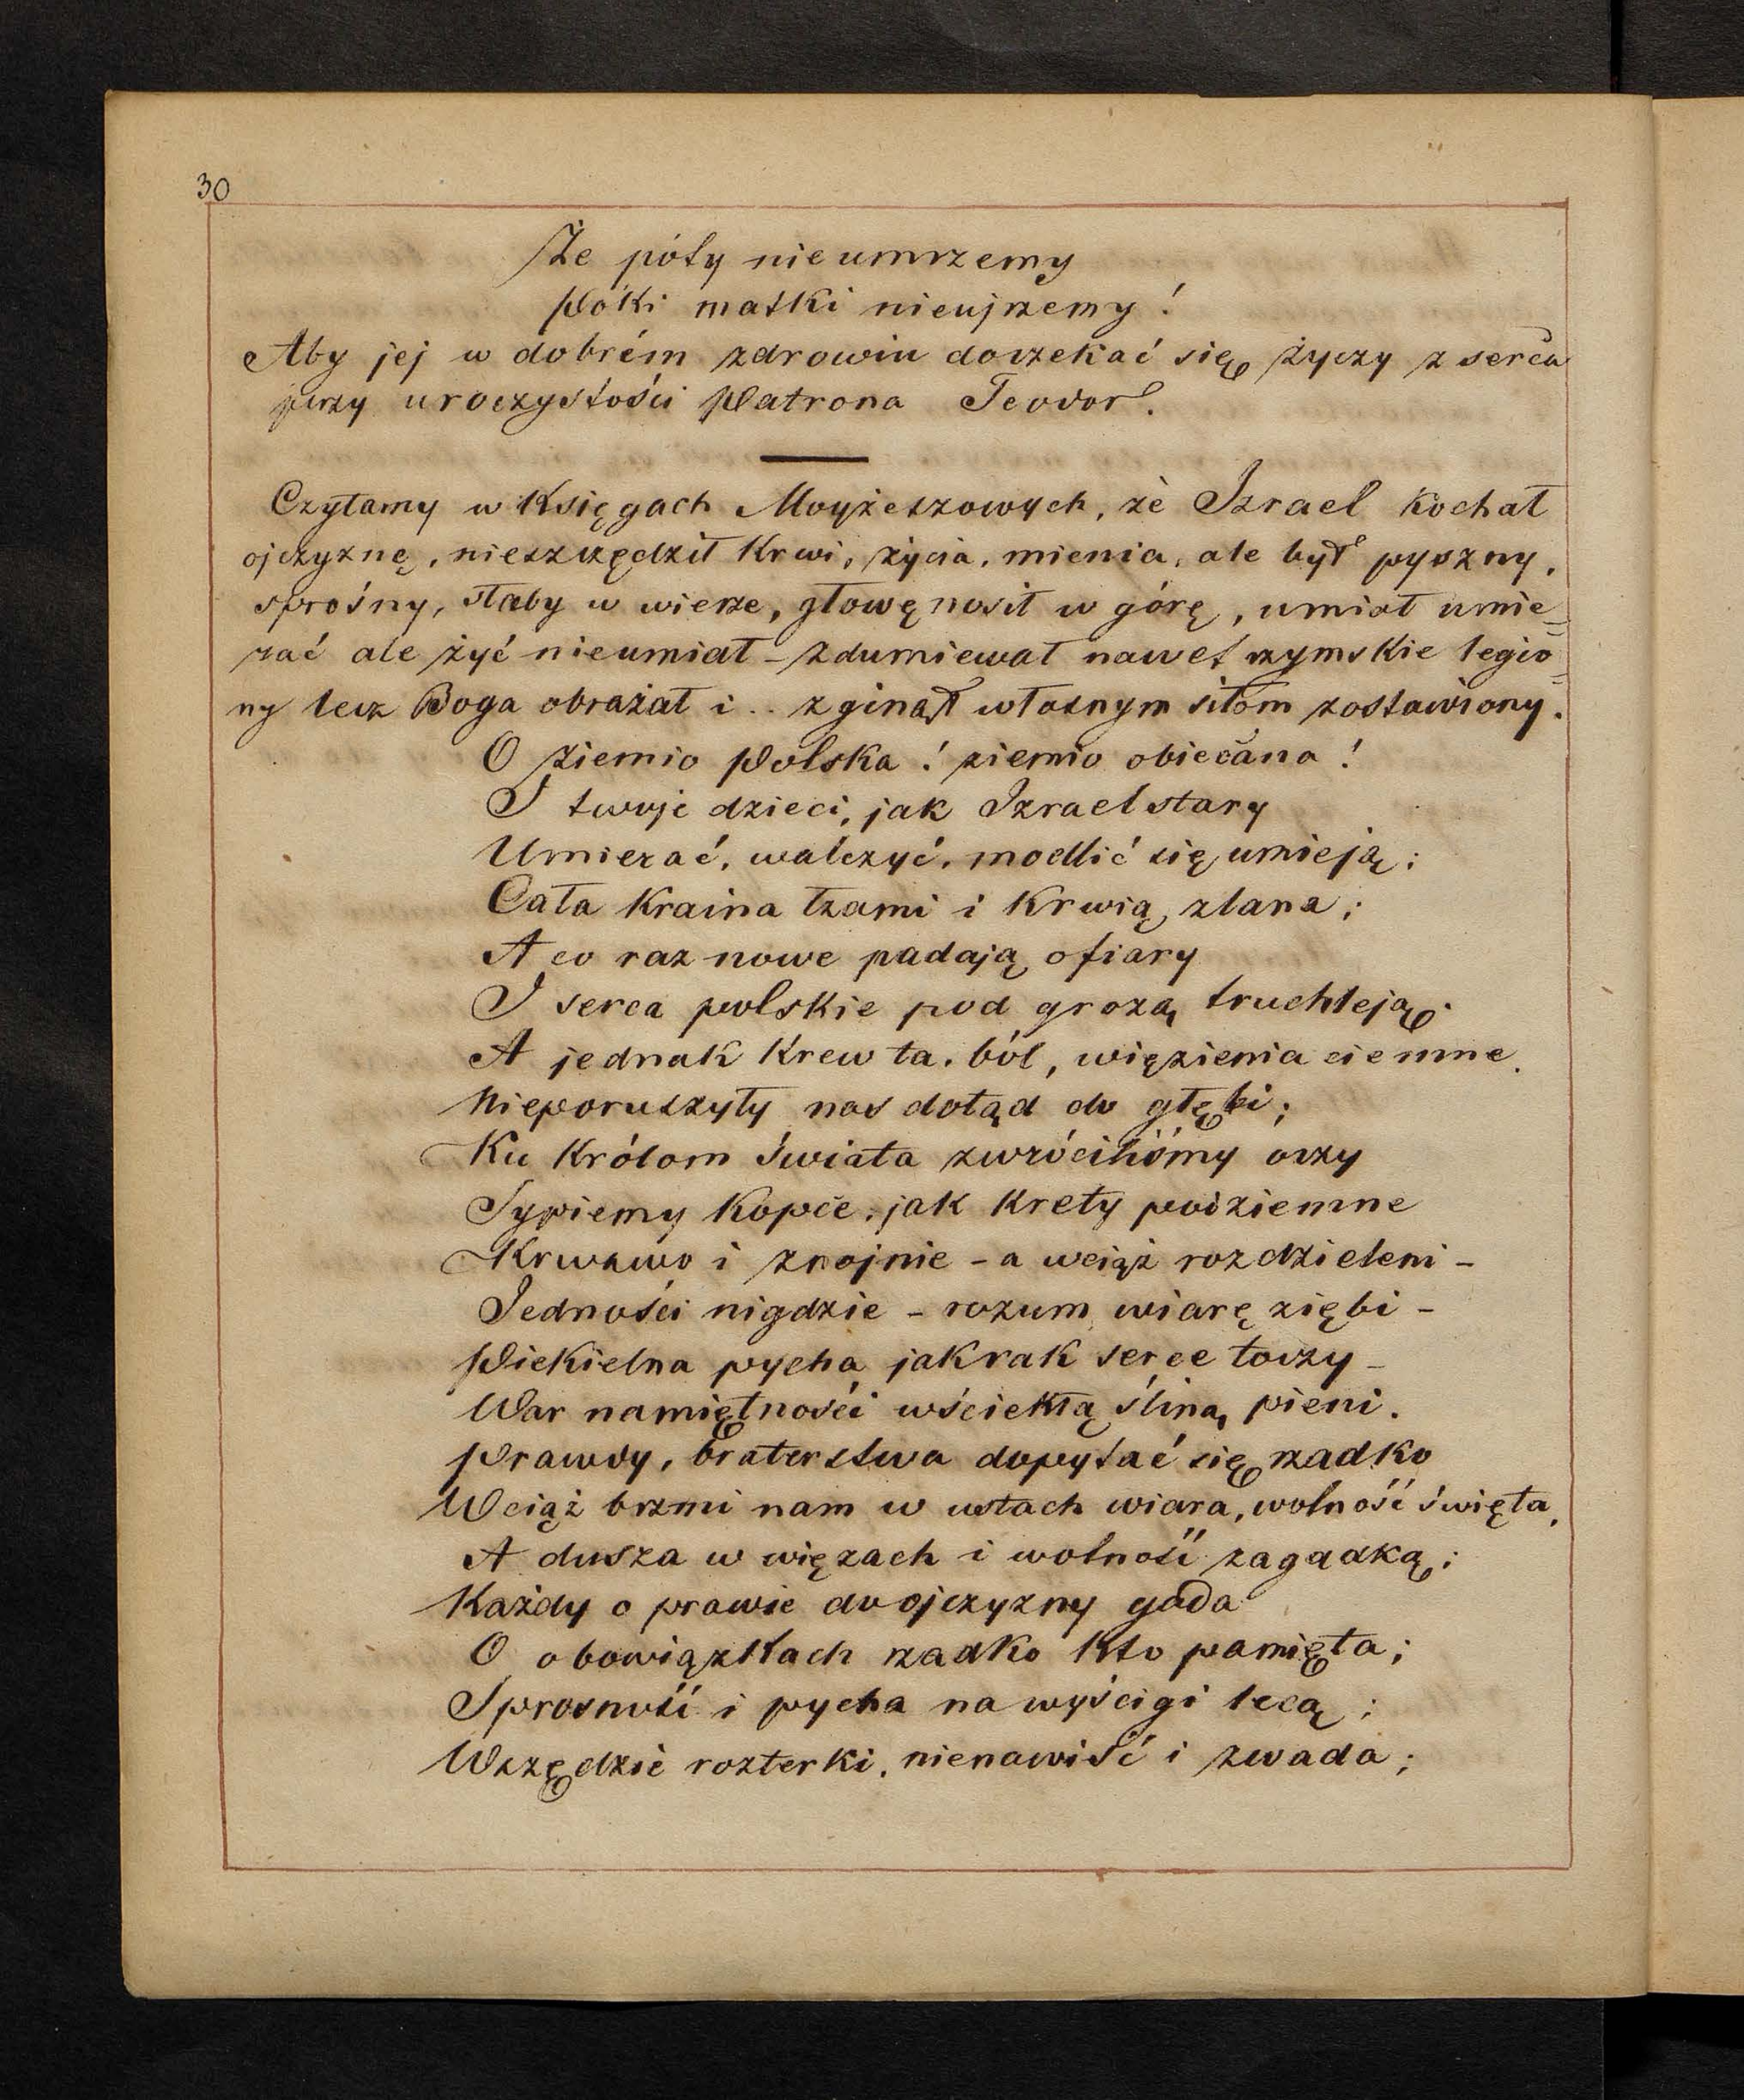 30
Że póły nie umrzemy
Póki matki nieujrzemy!
Aby jej w dobrém zdrowiu doczekać się życzy z serca
przy uroczystości Patrona Teodor.
Czytamy w Księgach Moyżeszowych, że Izrael kochał
ojczyznę, nieszczędził krwi, życia, mienia, ale był pyszny,
sprośny, słaby w wierze, głowę nosił w górę, umiał umie=
rać ale żyć nieumiał – zdumiewał nawet rzymskie legio=
ny lecz Boga obrażał i.. zginął własnym siłom zostawiony.
O ziemio Polska! ziemio obiecana!
I twoje dzieci, jak Izrael stary
Umierać, walczyć, modlić się umieją;
Cała kraina łzami i krwią zlana;
A co raz nowe padają ofiary
I serca polskie pod grozą truchleją.
A jednak krew ta, ból, więzienia ciemne,
Nieporuszyły nas dotąd do głębi;
Ku królom świata zwróciliśmy oczy
Sypiemy kopce, jak krety podziemne
Krwawo i znojnie – a wciąż rozdzieleni –
Jedności nigdzie – rozum wiarę ziębi –
Piekielna pycha jak rak serce toczy –
War namiętności wściekłą śliną pieni.
Prawdy, braterstwa dopytać się rzadko
Wciąż brzmi nam w ustach wiara, wolność święta,
A dusza w więzach i wolność zagadką;
Każdy o prawie do ojczyzny gada
O obowiązkach rzadko kto pamięta;
Sprosność i pycha na wyścigi lecą;
Wszędzie rozterki, nienawiść i zwada;